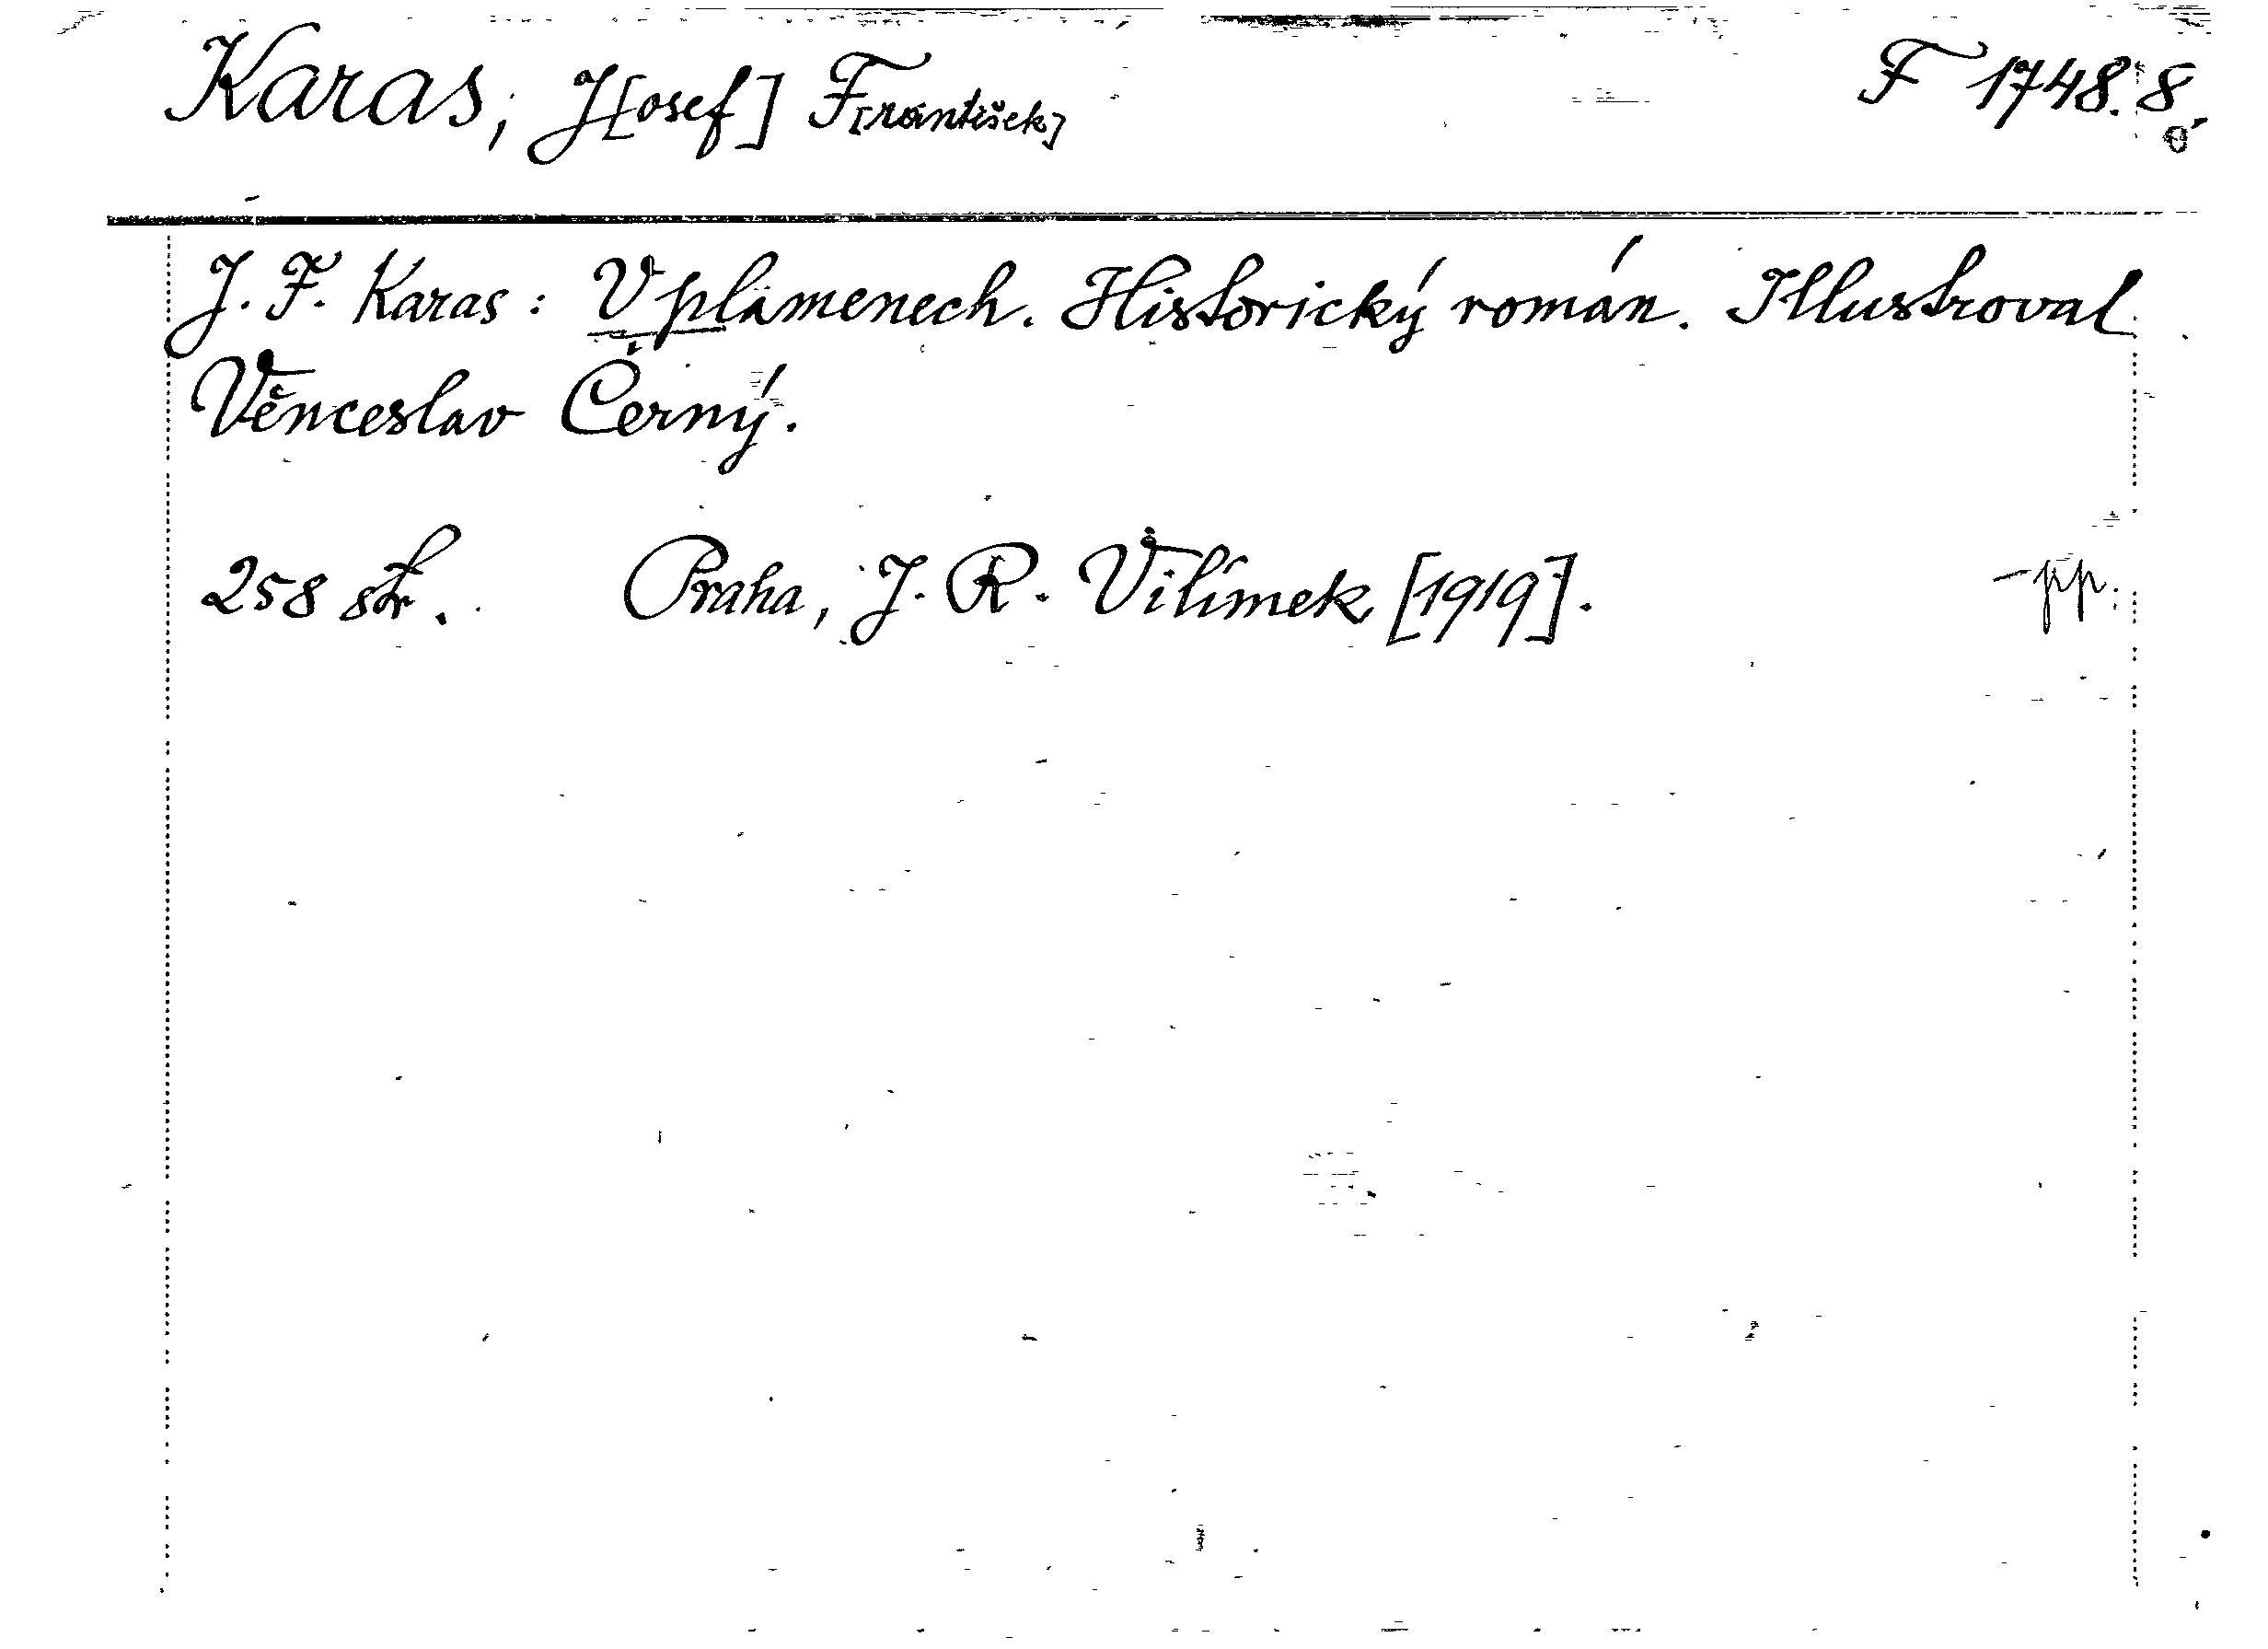 Karas, J[osef] F[rantišek] F 1748. 8
J. F. Karas: V plamenech. Historický román. Illustroval
Věnceslav Černý.
258 str. Praha, J. R. Vilímek [1919]. -pp.